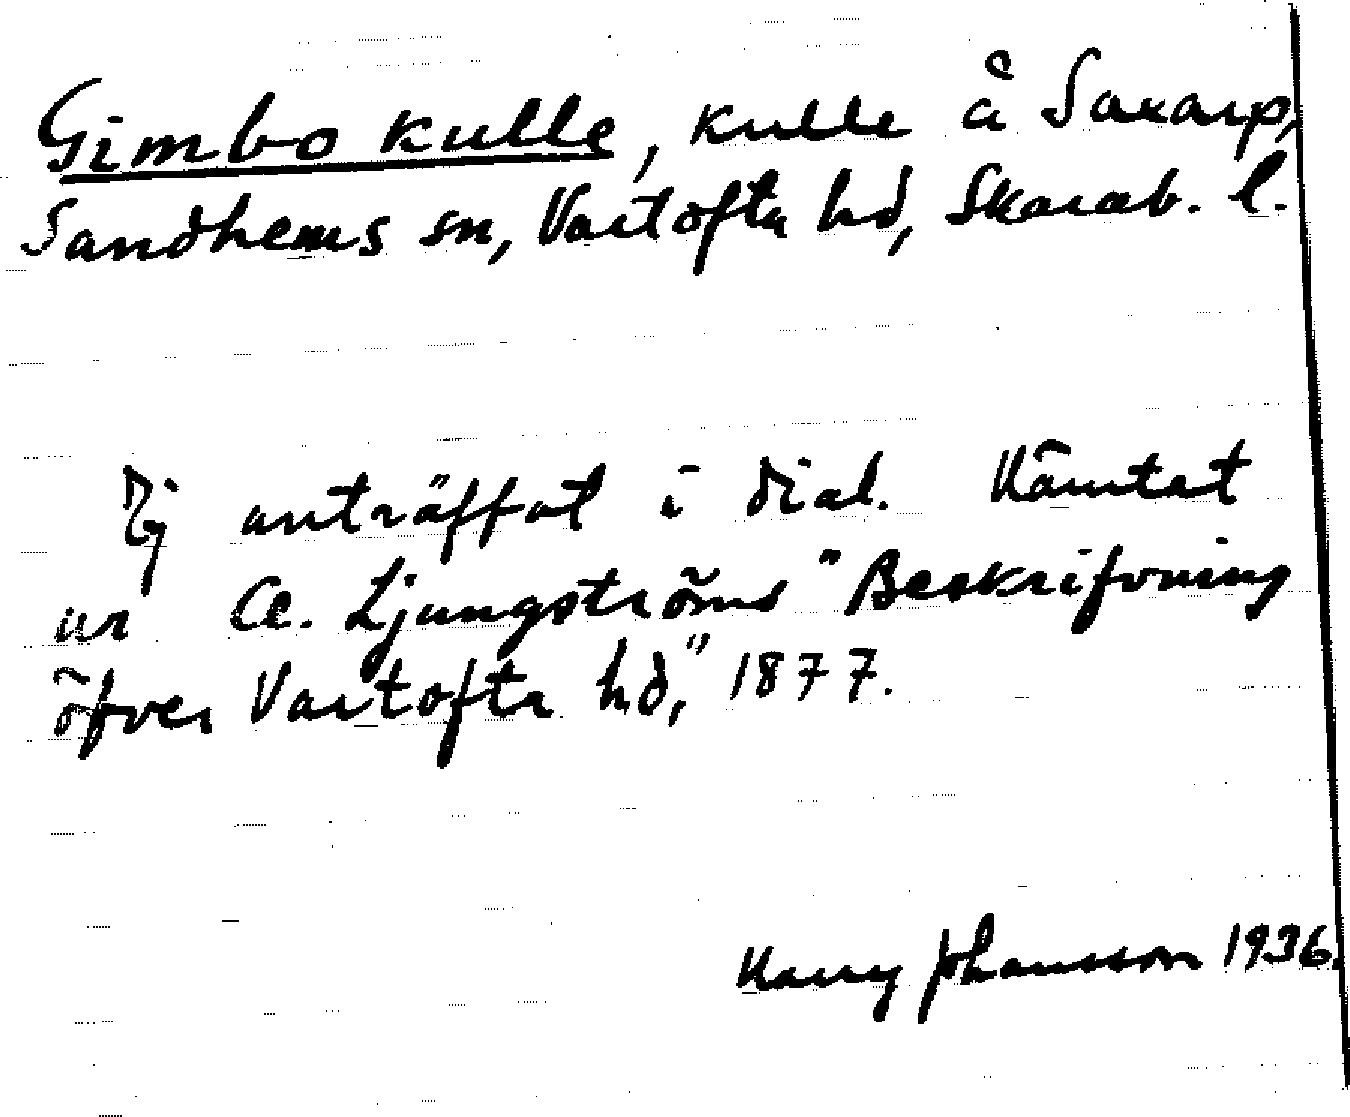 Gimbo kulle, kulle å Saxarp,
Sandhems sn, Vartofta hd, Skarab. l.
Ej anträffat i dial. Hämtat
ur Cl. Ljungströms "Beskrifvning
öfver Vartofta hd," 1877.
Harry Johansson 1936.